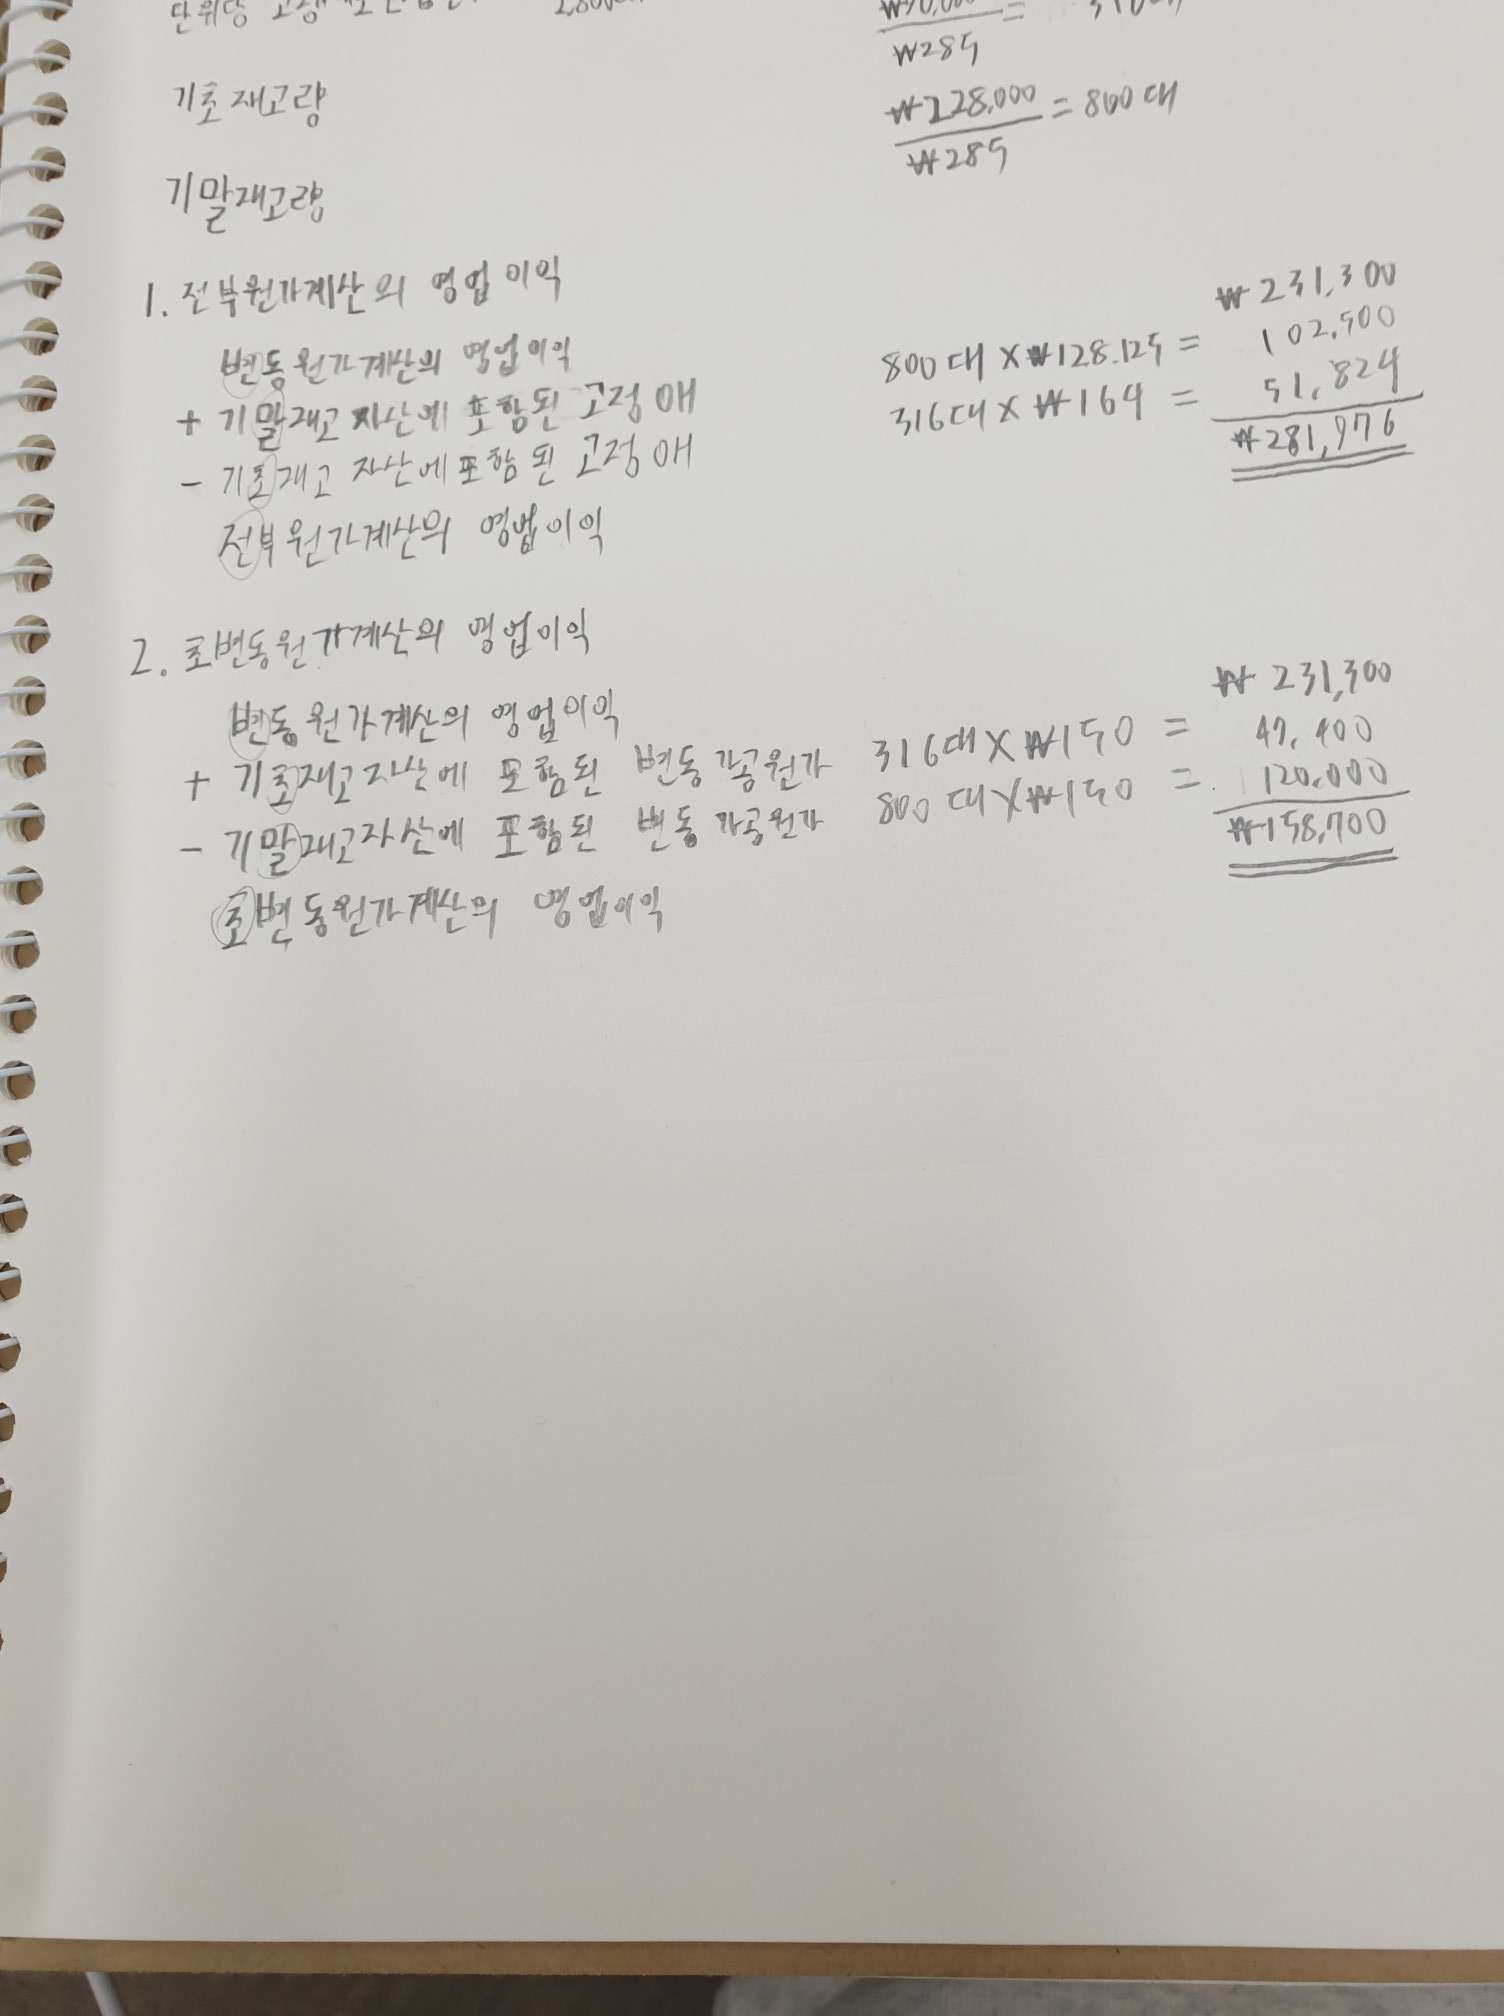 단위당 2,800
₩285
기초재고량 ₩228,000 = 800대
₩285
기말재고량
1. 전부원가계산의 영업이익
변동원가계산의 영업이익 ₩231,300
+ 기말재고자산에 포함된 고정 OH 800대 X ₩128.125 = 102,500
- 기초재고 자산에 포함된 고정 OH 316대 X ₩164 = 51,824
전부원가계산의 영업이익 ₩281,976
2. 초변동원가계산의 영업이익
변동원가계산의 영업이익 ₩231,300
+ 기초재고자산에 포함된 변동가공원가 316대 X ₩150 = 47,400
- 기말재고자산에 포함된 변동가공원가 800대 X ₩150 = 120,000
초변동원가계산의 영업이익 ₩158,700